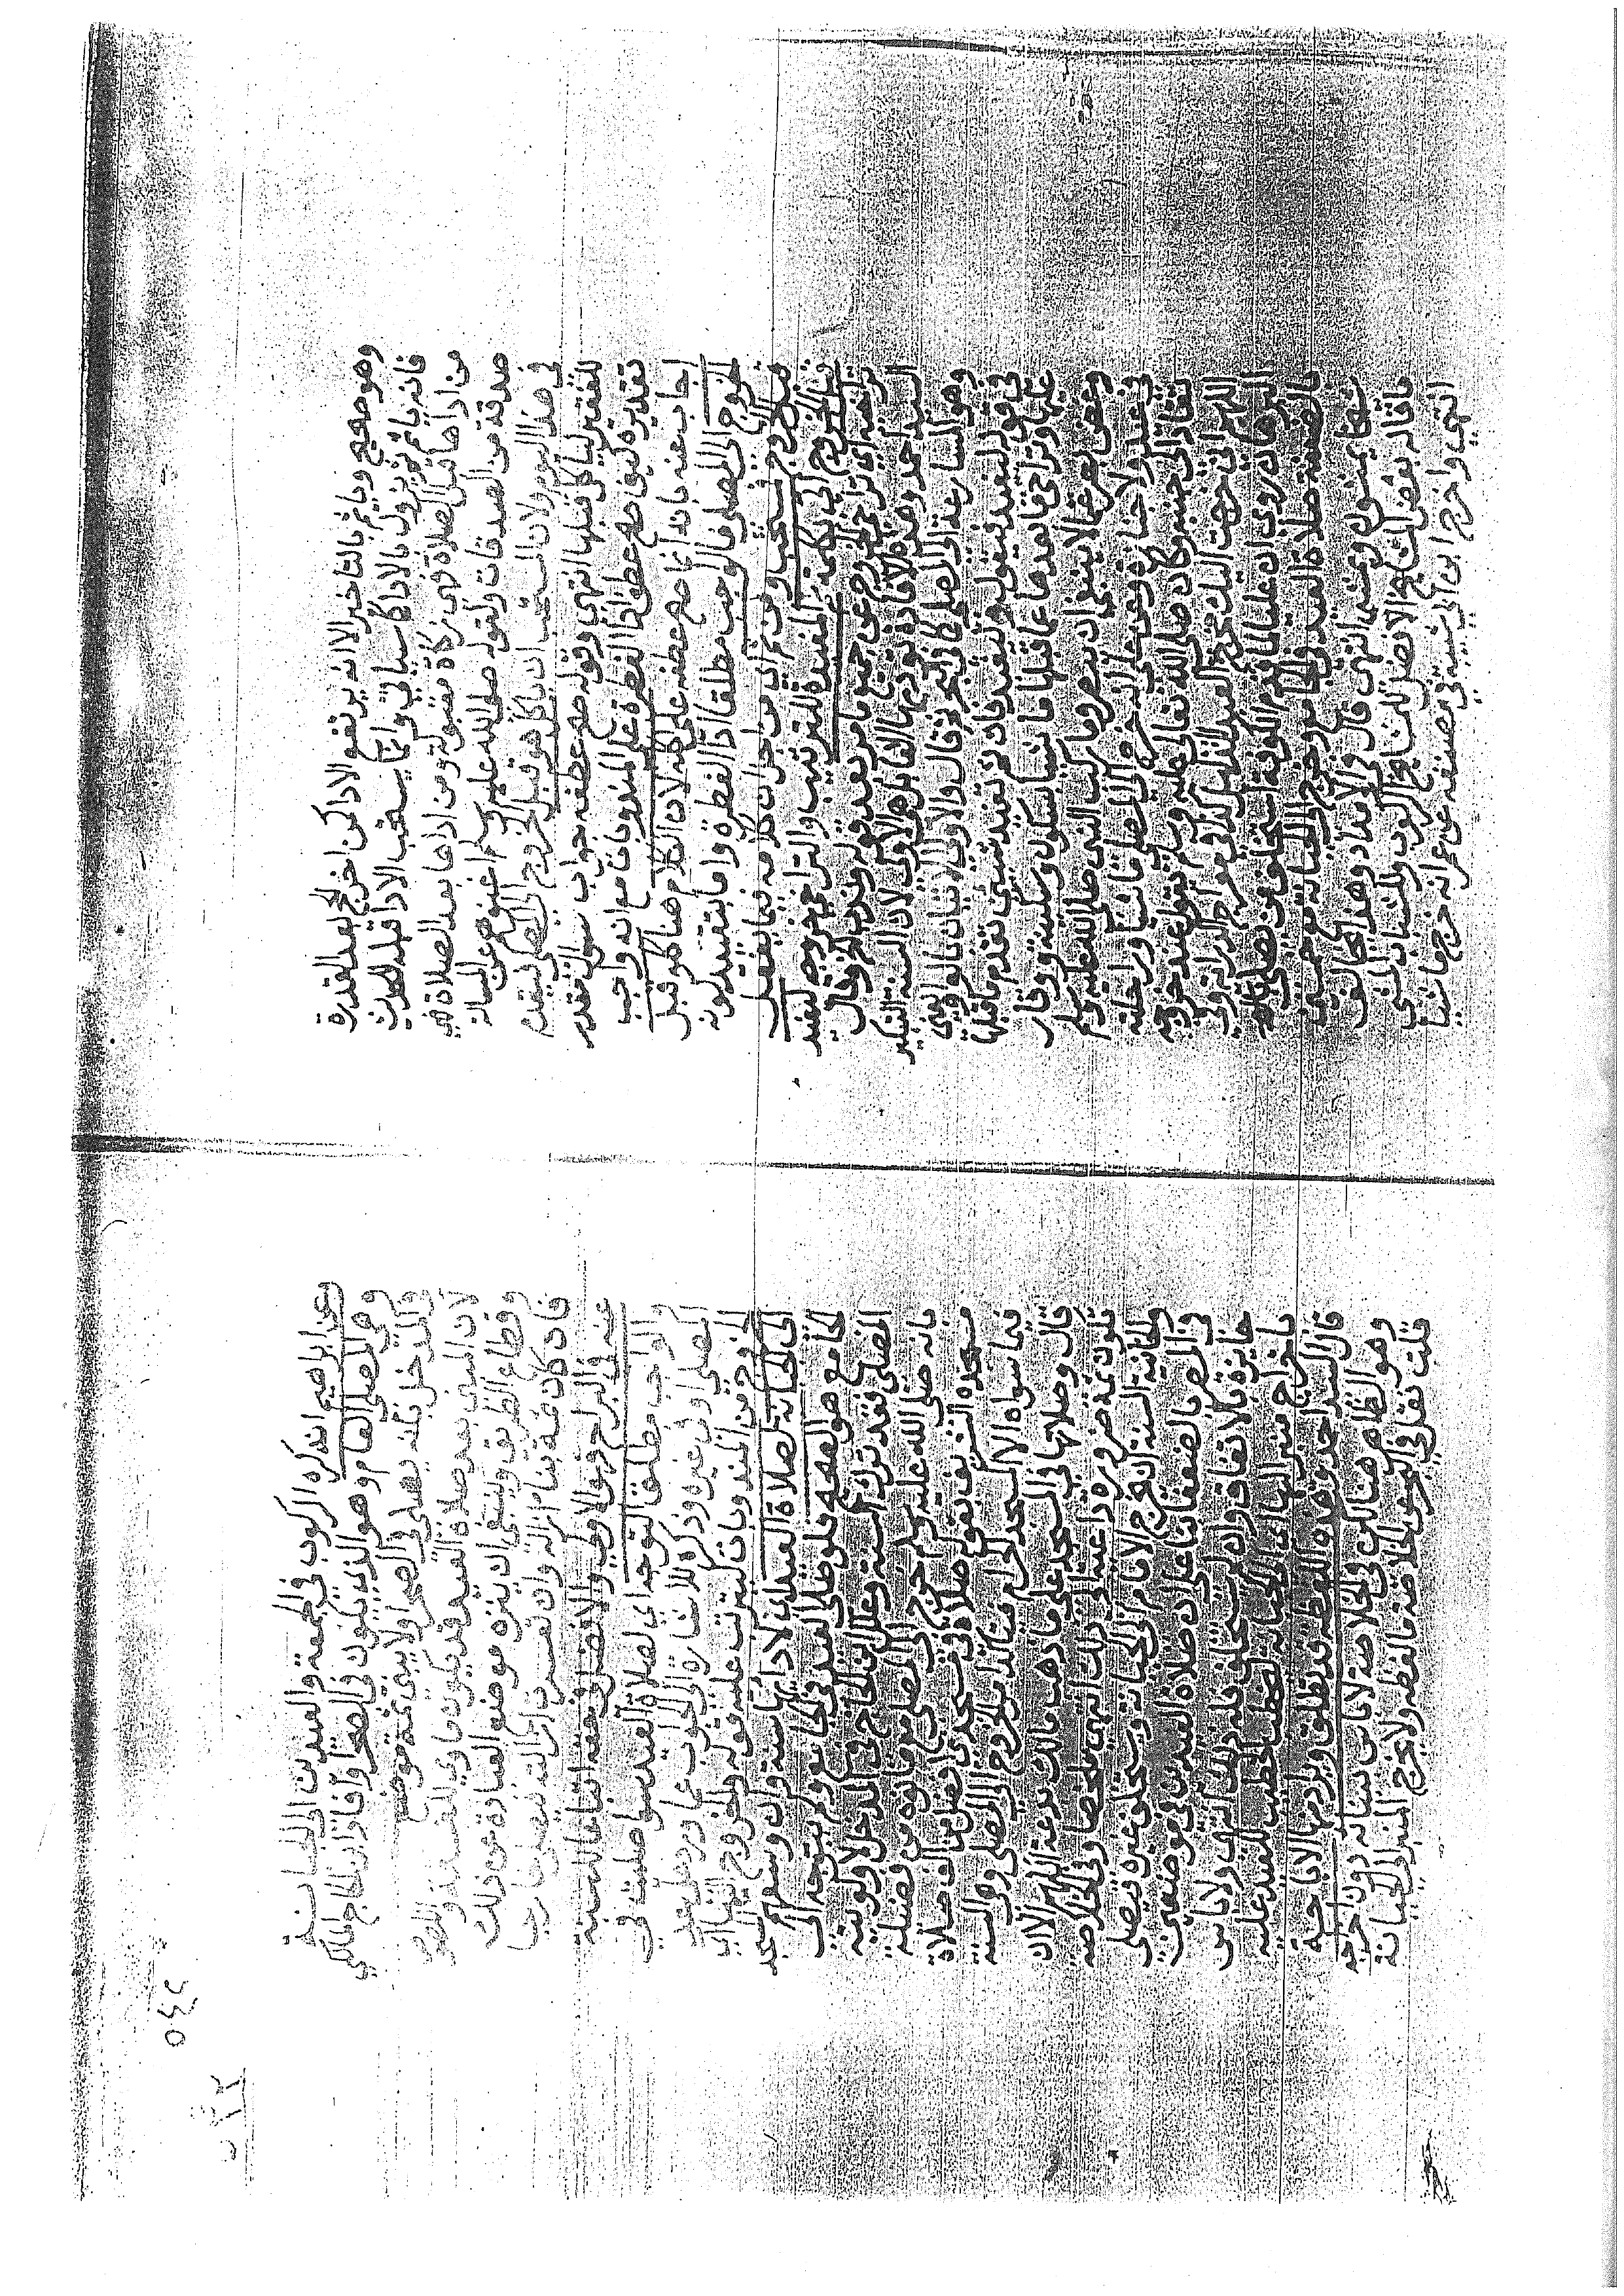 وهو صحيح وياثم بالتاخير الا انه يرتفع بالادا كمن اخر الحج بعد القدرة
فانه ياثم ثم يزول بالادا كما سياتي وانما يستحب الادا قبله لحديث
من اداها قبل الصلاة فهي زكاة مقبولة ومن اداها بعد الصلاة فهي
صدقة من الصدقات ولقوله صلى الله عليه وسلم اغنوهم عن المسالة
في هذا اليوم ولان المستحب ان ياكل هو قبل الخروج الى المصلى فيقدم
للفقير لياكل قبلها انتهى وقوله صح عطفه جواب سوال مقدر
تقديره كيف صح عطف ادا الفطرة على المندوبات مع انه واجب
اجاب عنه بانه انما صح عطفه على اكله لان الكلام هنا كله قبل
الخروج الى المصلى فالواجب مطلقا ادا الفطرة واما بتقييد كونه
قبل الخروج فمستحب ومن ثم اي من اجل ان كلامه فيما يفعل
قبل الخروج اتى بكلمة ثم المفيدة للترتيب والتراخي خروجه ليفيد
تراخيه اي تراخي الخروج عن جميع ما مر بعد قوله وندب الخ وقال
السيد احمد وهذه الافادة تؤذن بان التاخير هو الاولى لان السنة التبكير
وهو المسارعة الى المصلى كما في البحر ثم قال والاولى الاتيان بالواو يعني
في قوله ليفيد فيقول وليفيد فان ثم تفيد شيئين تقدم ما قبلها
عليها وتراخي ما بعدها عما قبلها ماشيا بسكون وسكينة ووقار
وغض بصر عما لا ينبغي ان يبصر وما ركب النبي صلى الله عليه وسلم
في عيد ولا جنازة وعن علي انه خرج الى المصلى ماشيا وراحلته
تقاد الى جنبه وكان صلى الله تعالى عليه وسلم يقول عند خروجه
اللهم اني خرجت اليك مخرج العبد الذليل كذا في معراج الدراية وفي
البزهان روي ان عليا لما قدم الكوفة استخلف من يصلي
بالضعفة صلاة العيد في الجامع وخرج الى الجبانة مع خمسين
شيخا يمشي ويمشون انتهى قال في الامداد وهذا يخالف
ما قاله بعض المشايخ الافضل للمشايخ الركوب وللشبان المشي
انتهى واخرج ابن ابي شيبة في مصنفه عن عمر انه خرج ماشيا
٥٤٢
وعن ابراهيم انه كره الركوب في الجمعة والعيدين الى الجبانة
وهي المصلى العام وهو الذي يكون في الصحرا وافاد ابن الحاج المالكي
في المدخل بانه يصلي في الصحرا ولا يبنى ثمة موضع
لان المبنى بعد صلاة العيد قد يكون ماوى للفسقة واللصوص
وقطاع الطريق وينبغي ان ينزه موضع العبادة عن ذلك
فان كان ثمة بناء ازاله وان تعسرت ازالته فيصلي خارجا
عنه في البراح فهو الاولى والافضل وفيه اتباعا للسنة
والواجب مطلق التوجه اي لصلاة العيد سوا صليت في
المصلى او في غيره وذكره للاشارة الى الجواب عما ورد على عد
الخروج من المندوبات ليترتب عليه قوله والخروج اليها اي
الى الجبانة لصلاة العيد اي لادائها سنة وان وسعهم المسجد
الجامع هو الصحيح فلو صلى العيد في الجامع ولم يتوجه الى
المصلى فقد ترك السنة وعلل ابن الحاج في المدخل الاولوية
بانه صلى الله عليه وسلم خرج الى المصلى مع ما نوه من فضيلة
مسجده الشريف بقوله صلاة في مسجدي افضل من الف صلاة
فيما سواه الا المسجد الحرام فيتاكد الخروج الى المصلى وهي السنة
قال وصلاتها في المسجد على ما ذهب مالك بدعة اللهم الا ان
تكون ثمة ضرورة داعية الى ذلك انتهى ملخصا وفي الخلاصة
والخانية السنة ان يخرج الامام الى الجبانة ويستخلف غيره ليصلي
في المصر بالضعفا بنا على ان صلاة العيدين في موضعين
جائزة بالاتفاق وان لم يستخلف فله ذلك انتهى ولا باس
باخراج منبر اليها اي الى الجبانة ليخطب الخطيب للعيد عليه
قال السيد احمد وهذه اللفظة قد تطلق ويراد منها الاباحة
وهو الظاهر هنا لكن في الخلاصة لا باس ببنائه دون اخراجه
قلت نقل في البحر عن الخلاصة ما لفظه ولا يخرج المنبر الى الجبانة